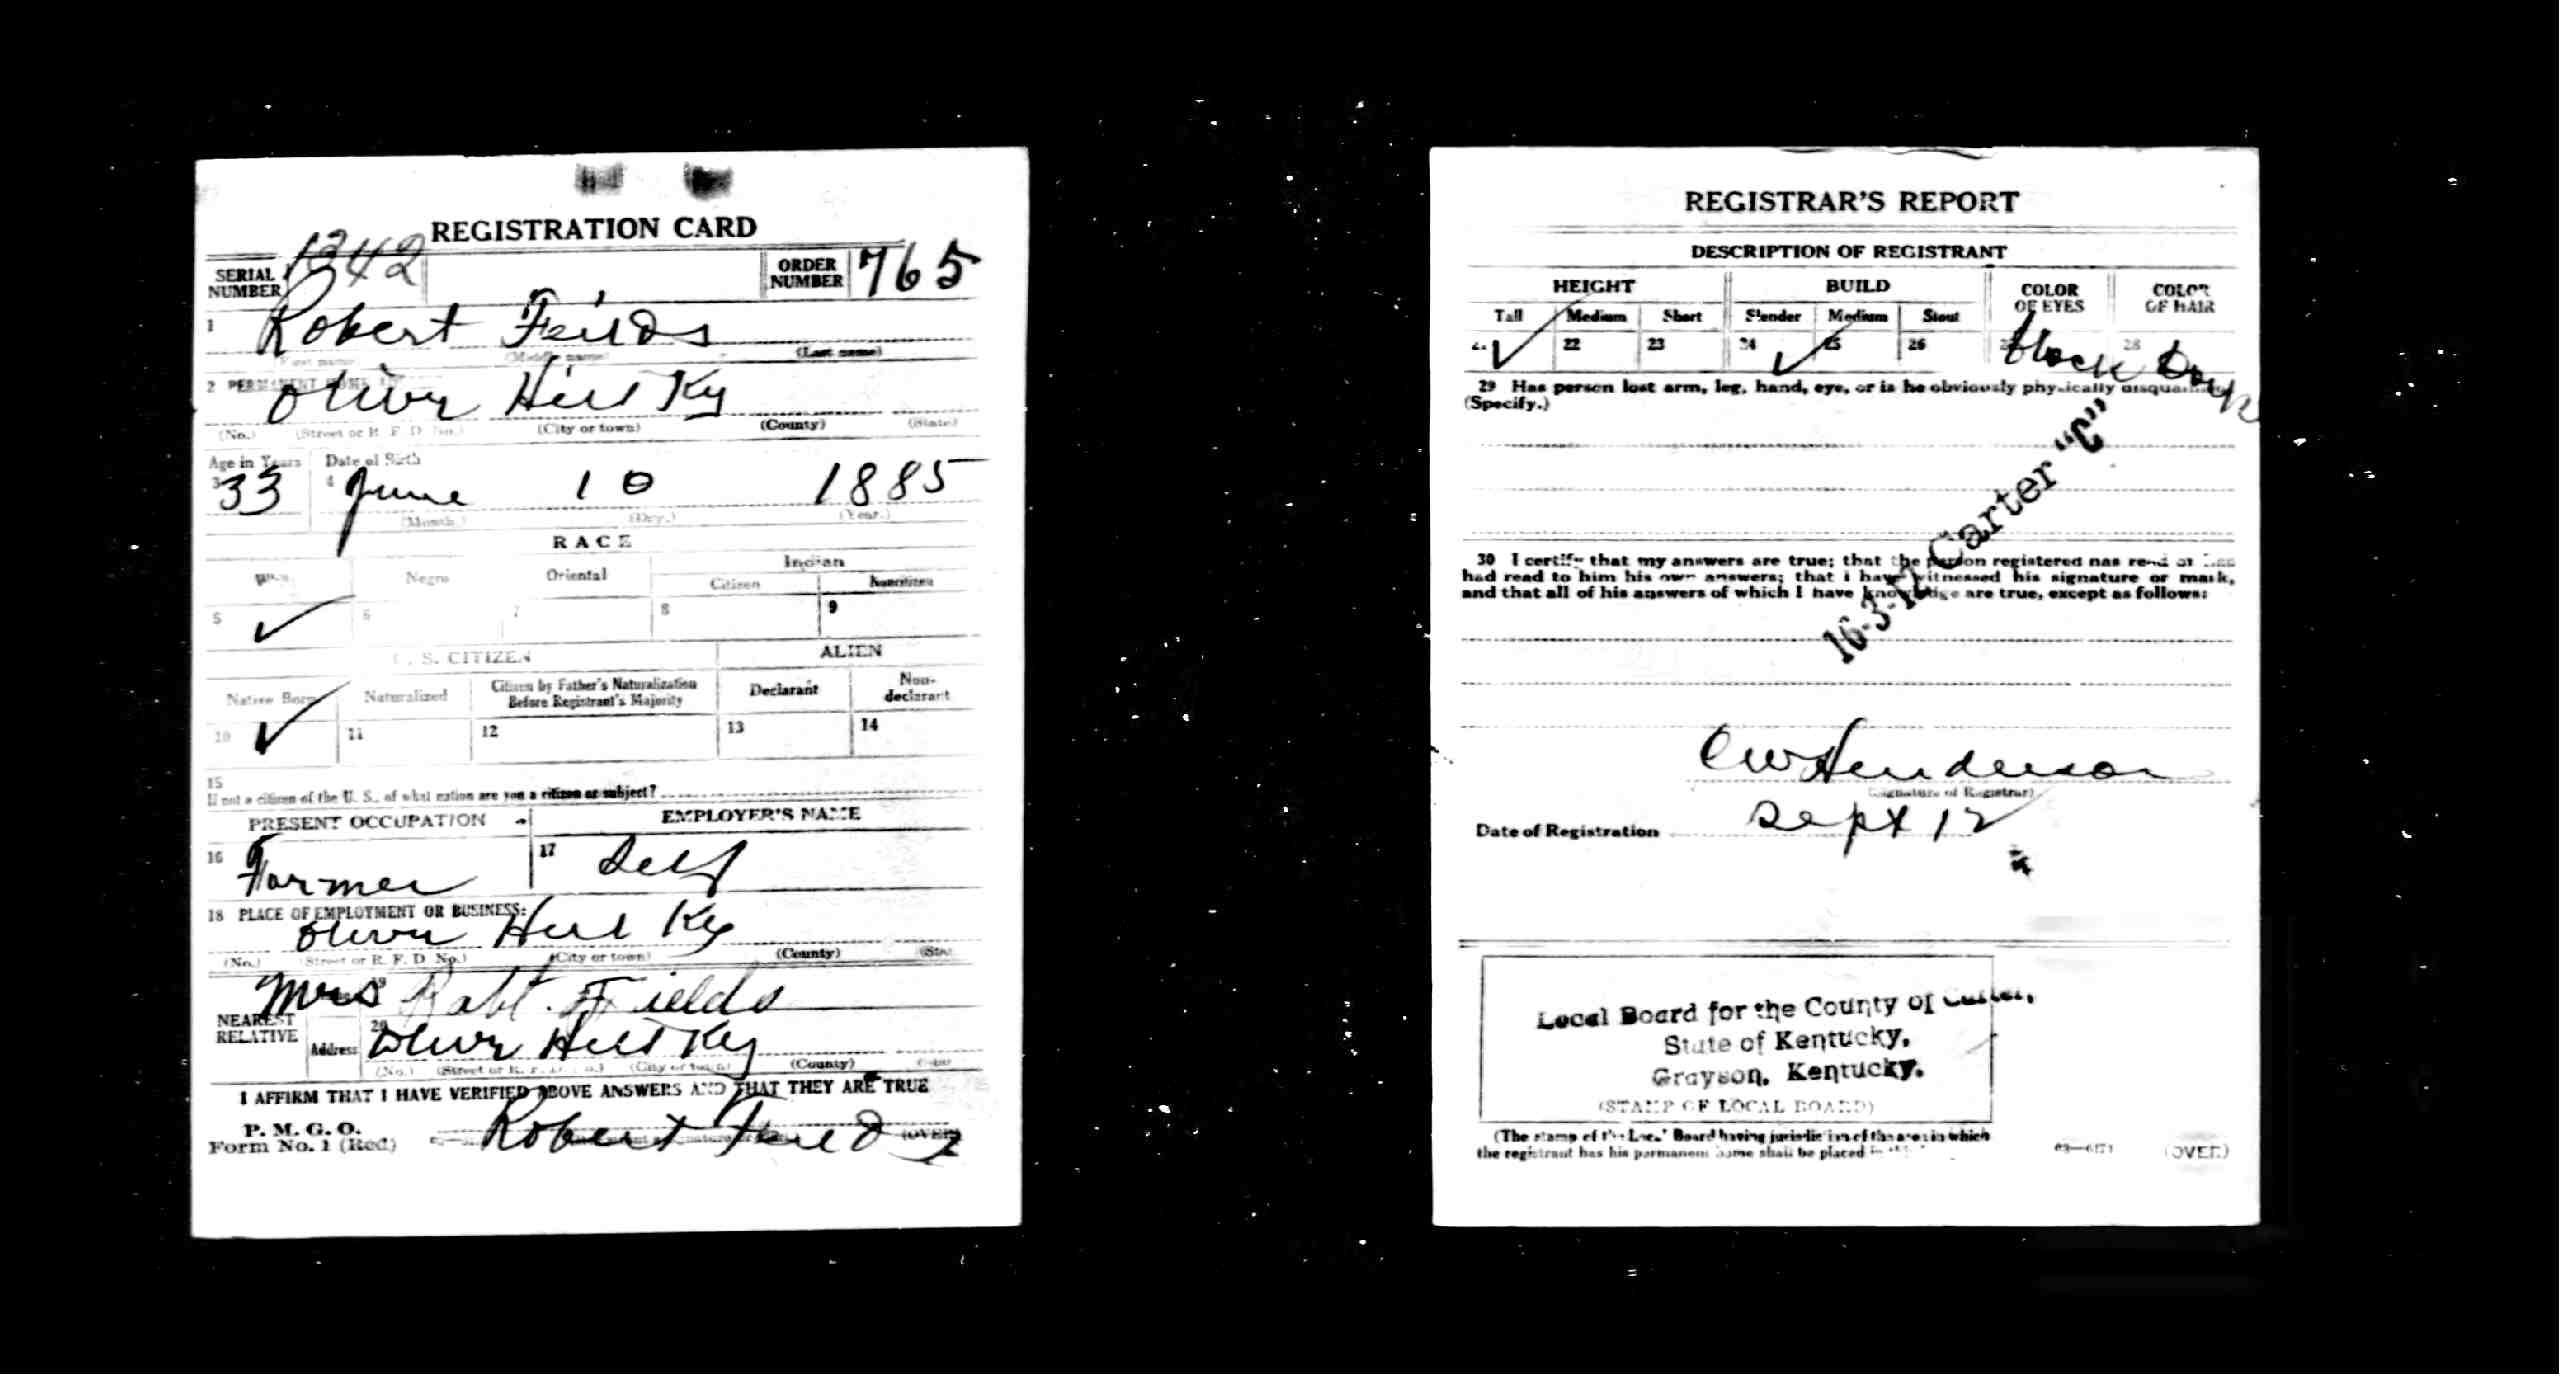 REGISTRATION CARD
SERIAL NUMBER 1342 ORDER NUMBER 765
1 Robert Feilds
(First name) (Middle name) (Last name)
2 PERMANENT HOME
Olive Hill Ky
(No.) (Street or R. F. D. No.) (City or town) (County) (State)
Age in Years Date of Birth
3 33 4 June 10 1885
(Month.) (Day.) (Year.)
RACE
White Negro Oriental Indian
Citizen Noncitizen
5 ✓ 6 7 8 9
U. S. CITIZEN ALIEN
Native Born Naturalized Citizen by Father's Naturalization Before Registrant's Majority Declarant Non-declarant
10 ✓ 11 12 13 14
15
If not a citizen of the U. S., of what nation are you a citizen or subject?
PRESENT OCCUPATION EMPLOYER'S NAME
16 Farmer 17 Self
18 PLACE OF EMPLOYMENT OR BUSINESS:
Olive Hill Ky
(No.) (Street or R. F. D. No.) (City or town) (County) (State)
NEAREST RELATIVE 19 Mrs Robt. Fields
Address 20 Olive Hill Ky
(No.) (Street or R. F. D. No.) (City or town) (County) (State)
I AFFIRM THAT I HAVE VERIFIED ABOVE ANSWERS AND THAT THEY ARE TRUE
P. M. G. O.
Form No. 1 (Red) Robert Feilds (OVER)
REGISTRAR'S REPORT
DESCRIPTION OF REGISTRANT
HEIGHT BUILD COLOR OF EYES COLOR OF HAIR
Tall Medium Short Slender Medium Stout
21 ✓ 22 23 24 ✓ 25 26 27 black 28 Dark
29 Has person lost arm, leg, hand, eye, or is he obviously physically disqualified?
(Specify.)
16-3-12 Carter "C"
30 I certify that my answers are true; that the person registered has read or has
had read to him his own answers; that I have witnessed his signature or mark,
and that all of his answers of which I have knowledge are true, except as follows:
C W Henderson
(Signature of Registrar)
Date of Registration Sept 12
Local Board for the County of Carter,
State of Kentucky,
Grayson, Kentucky.
(STAMP OF LOCAL BOARD)
(The stamp of the Local Board having jurisdiction of the area in which
the registrant has his permanent home shall be placed in this
03—6171 (OVER)